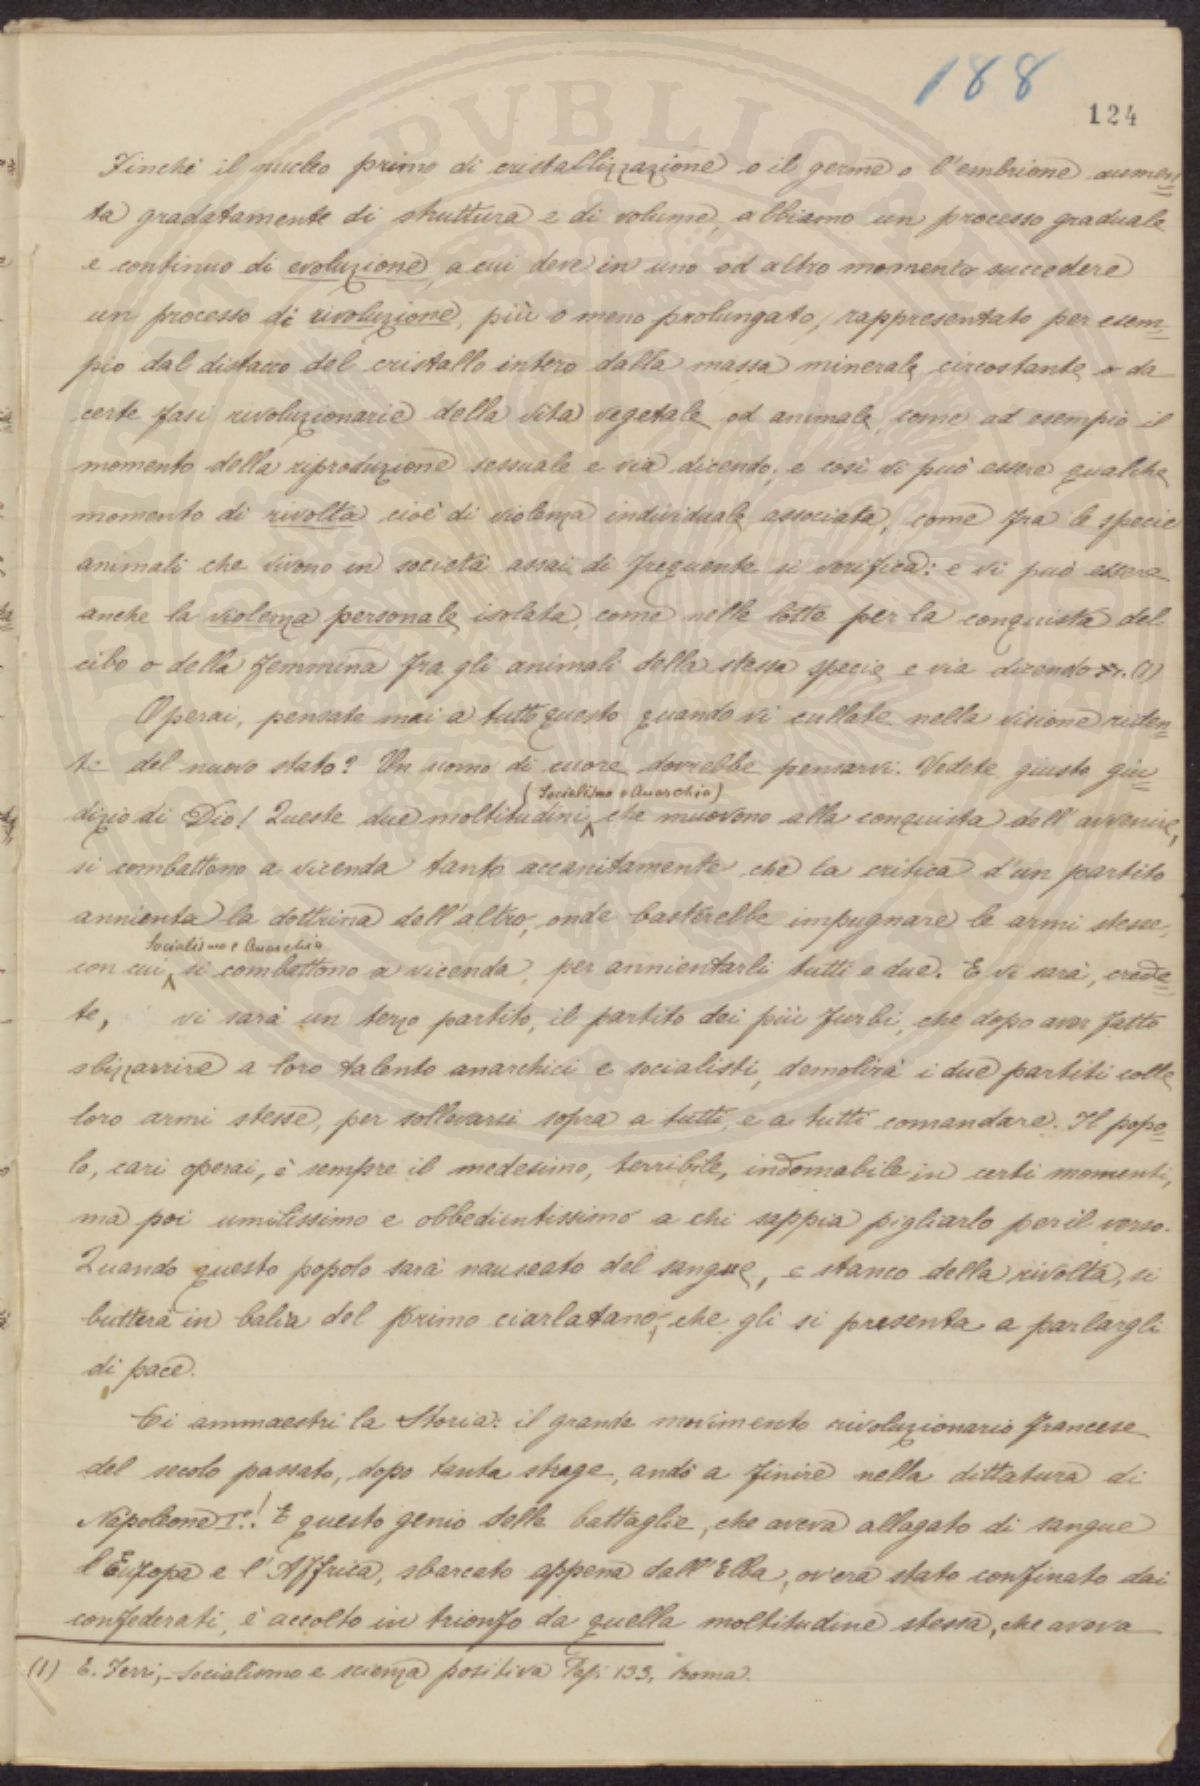 188
124
Finchè il nucleo primo di cristallizzazione o il germe o l'embrione aumen=
ta gradatamente di struttura e di volume, abbiamo un processo graduale
e continuo di evoluzione, a cui deve in uno od altro momento succedere
un processo di rivoluzione, più o meno prolungato, rappresentato per esem=
pio dal distacco del cristallo intero dalla massa minerale circostante o da
certe fasi rivoluzionarie della vita vegetale od animale, come ad esempio il
momento della riproduzione sessuale e via dicendo; e così vi può essere qualche
momento di rivolta cioè di violenza individuale associata, come fra le specie
animali che vivono in società assai di frequente si verifica: e vi può essere
anche la violenza personale isolata, come nelle lotte per la conquista del
cibo o della femmina fra gli animali della stessa specie e via dicendo». (1)
Operai, pensate mai a tutto questo quando vi cullate nella visione riden=
te del nuovo stato? Un uomo di cuore dovrebbe pensarvi. Vedete giusto giu=
(Socialismo e Anarchia)
dizio di Dio! Queste due moltitudini che muovono alla conquista dell'avvenire,
si combattono a vicenda tanto accanitamente che la critica d'un partito
annienta la dottrina dell'altro, onde basterebbe impugnare le armi stesse,
Socialismo e Anarchia
con cui si combattono a vicenda, per annientarli tutti e due. E vi sarà, crede=
te, vi sarà un terzo partito, il partito dei più furbi, che dopo aver fatto
sbizzarrire a loro talento anarchici e socialisti, demolirà i due partiti colle
loro armi stesse, per sollevarsi sopra a tutti, e a tutti comandare. Il popo=
lo, cari operai, è sempre il medesimo, terribile, indomabile in certi momenti,
ma poi umilissimo e obbedientissimo a chi sappia pigliarlo per il verso.
Quando questo popolo sarà nauseato del sangue, e stanco della rivolta, si
butterà in balìa del primo ciarlatano, che gli si presenta a parlargli
di pace.
Ci ammaestri la Storia: il grande movimento rivoluzionario francese
del secolo passato, dopo tanta strage, andò a finire nella dittatura di
Napoleone I°.! E questo genio delle battaglie, che aveva allagato di sangue
l'Europa e l'Affrica, sbarcato appena dall'Elba, ov'era stato confinato dai
confederati, è accolto in trionfo da quella moltitudine stessa, che aveva
(1) E. Ferri, - Socialismo e scienza positiva Pag. 133, Roma.